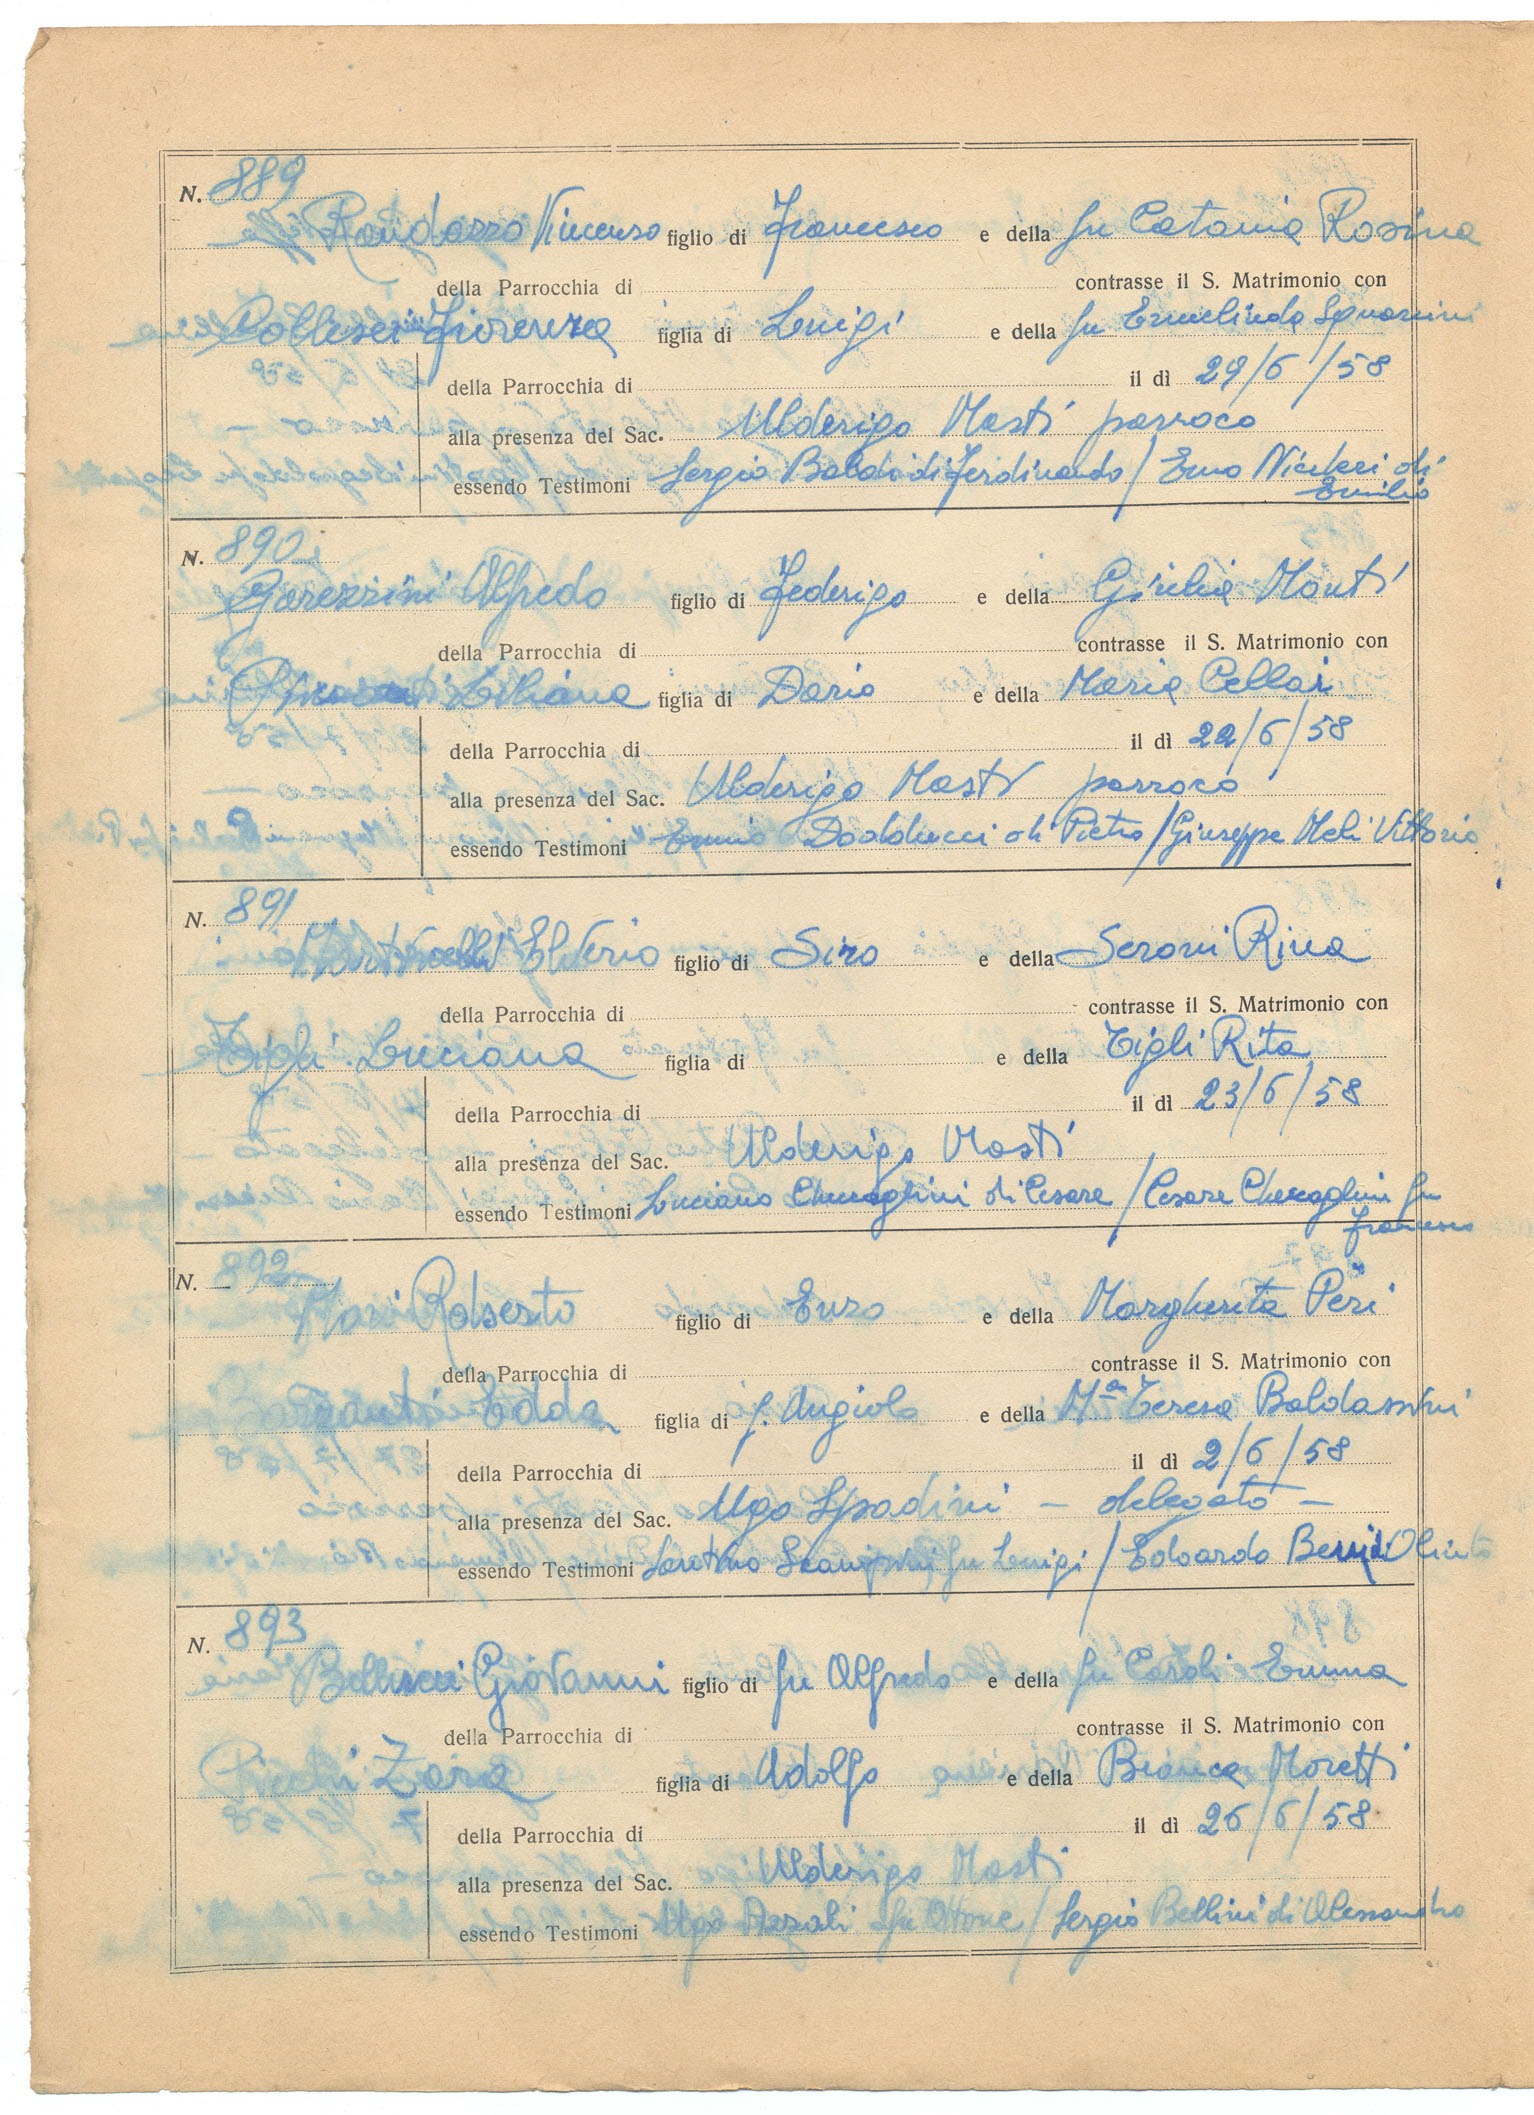 N. 889
Randazzo Vincenzo figlio di Francesco e della fu Catania Rosina
della Parrocchia di contrasse il S. Matrimonio con
Collesei Fiorenza figlia di Luigi e della fu Ermelinda Sguanini
della Parrocchia di il dì 29/6/58
alla presenza del Sac. Ulderigo Masti parroco
essendo Testimoni Sergio Baldi di Ferdinando / Emo Niccheri di
Emilio
N. 890
Garezzini Alfredo figlio di Federigo e della Giulia Monti
della Parrocchia di contrasse il S. Matrimonio con
Liliana figlia di Dario e della Maria Cellai
della Parrocchia di il dì 22/6/58
alla presenza del Sac. Ulderigo Masti parroco
essendo Testimoni Ennio Dadducci di Pietro / Giuseppe Meli Vittorio
N. 891
Martinelli Elverio figlio di Siro e della Seroni Rina
della Parrocchia di contrasse il S. Matrimonio con
Tigli Luciana figlia di e della Tigli Rita
della Parrocchia di il dì 23/6/58
alla presenza del Sac. Ulderigo Masti
essendo Testimoni Luciano Cheraghini di Cesare / Cesare Cheraghini fu
Francesco
N. 892
Mari Roberto figlio di Enzo e della Margherita Peri
della Parrocchia di contrasse il S. Matrimonio con
Edda figlia di f. Angiolo e della Mª Teresa Baldassini
della Parrocchia di il dì 2/6/58
alla presenza del Sac. Ugo Spadini - delegato -
essendo Testimoni fu Luigi / Edoardo Olinto
N. 893
Bellucci Giovanni figlio di fu Alfredo e della fu Caroli Emma
della Parrocchia di contrasse il S. Matrimonio con
Picchi Zara figlia di Adolfo e della Bianca Moretti
della Parrocchia di il dì 26/6/58
alla presenza del Sac. Ulderigo Masti
essendo Testimoni Ugo Azzali fu Ottone / Sergio Bellini di Alessandro